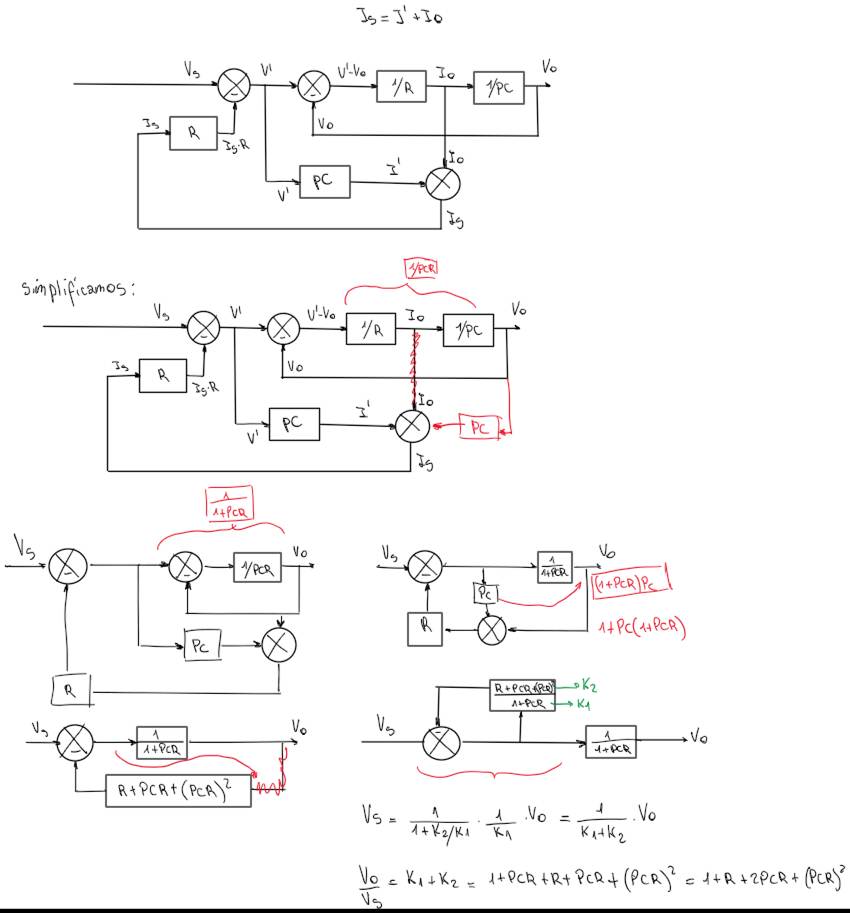 Is = I' + Io
Vs V' V'-Vo 1/R Io 1/PC Vo
Vo
Is R Is·R
V' PC I' Io
Is
simplificamos:
1/PCR
Vs V' V'-Vo 1/R Io 1/PC Vo
Vo
Is R Is·R
V' PC I' Io PC
Is
1/(1+PCR)
Vs 1/PCR Vo
PC
R
Vs 1/(1+PCR) Vo
PC (1+PCR)PC
R 1+PC(1+PCR)
Vs 1/(1+PCR) Vo
R+PCR+(PCR)²
(R+PCR+(PCR)²)/(1+PCR) → K2 → K1
Vs 1/(1+PCR) Vo
Vs = 1/(1+K2/K1) · 1/K1 · Vo = 1/(K1+K2) · Vo
Vo/Vs = K1+K2 = 1+PCR+R+PCR+(PCR)² = 1+R+2PCR+(PCR)²